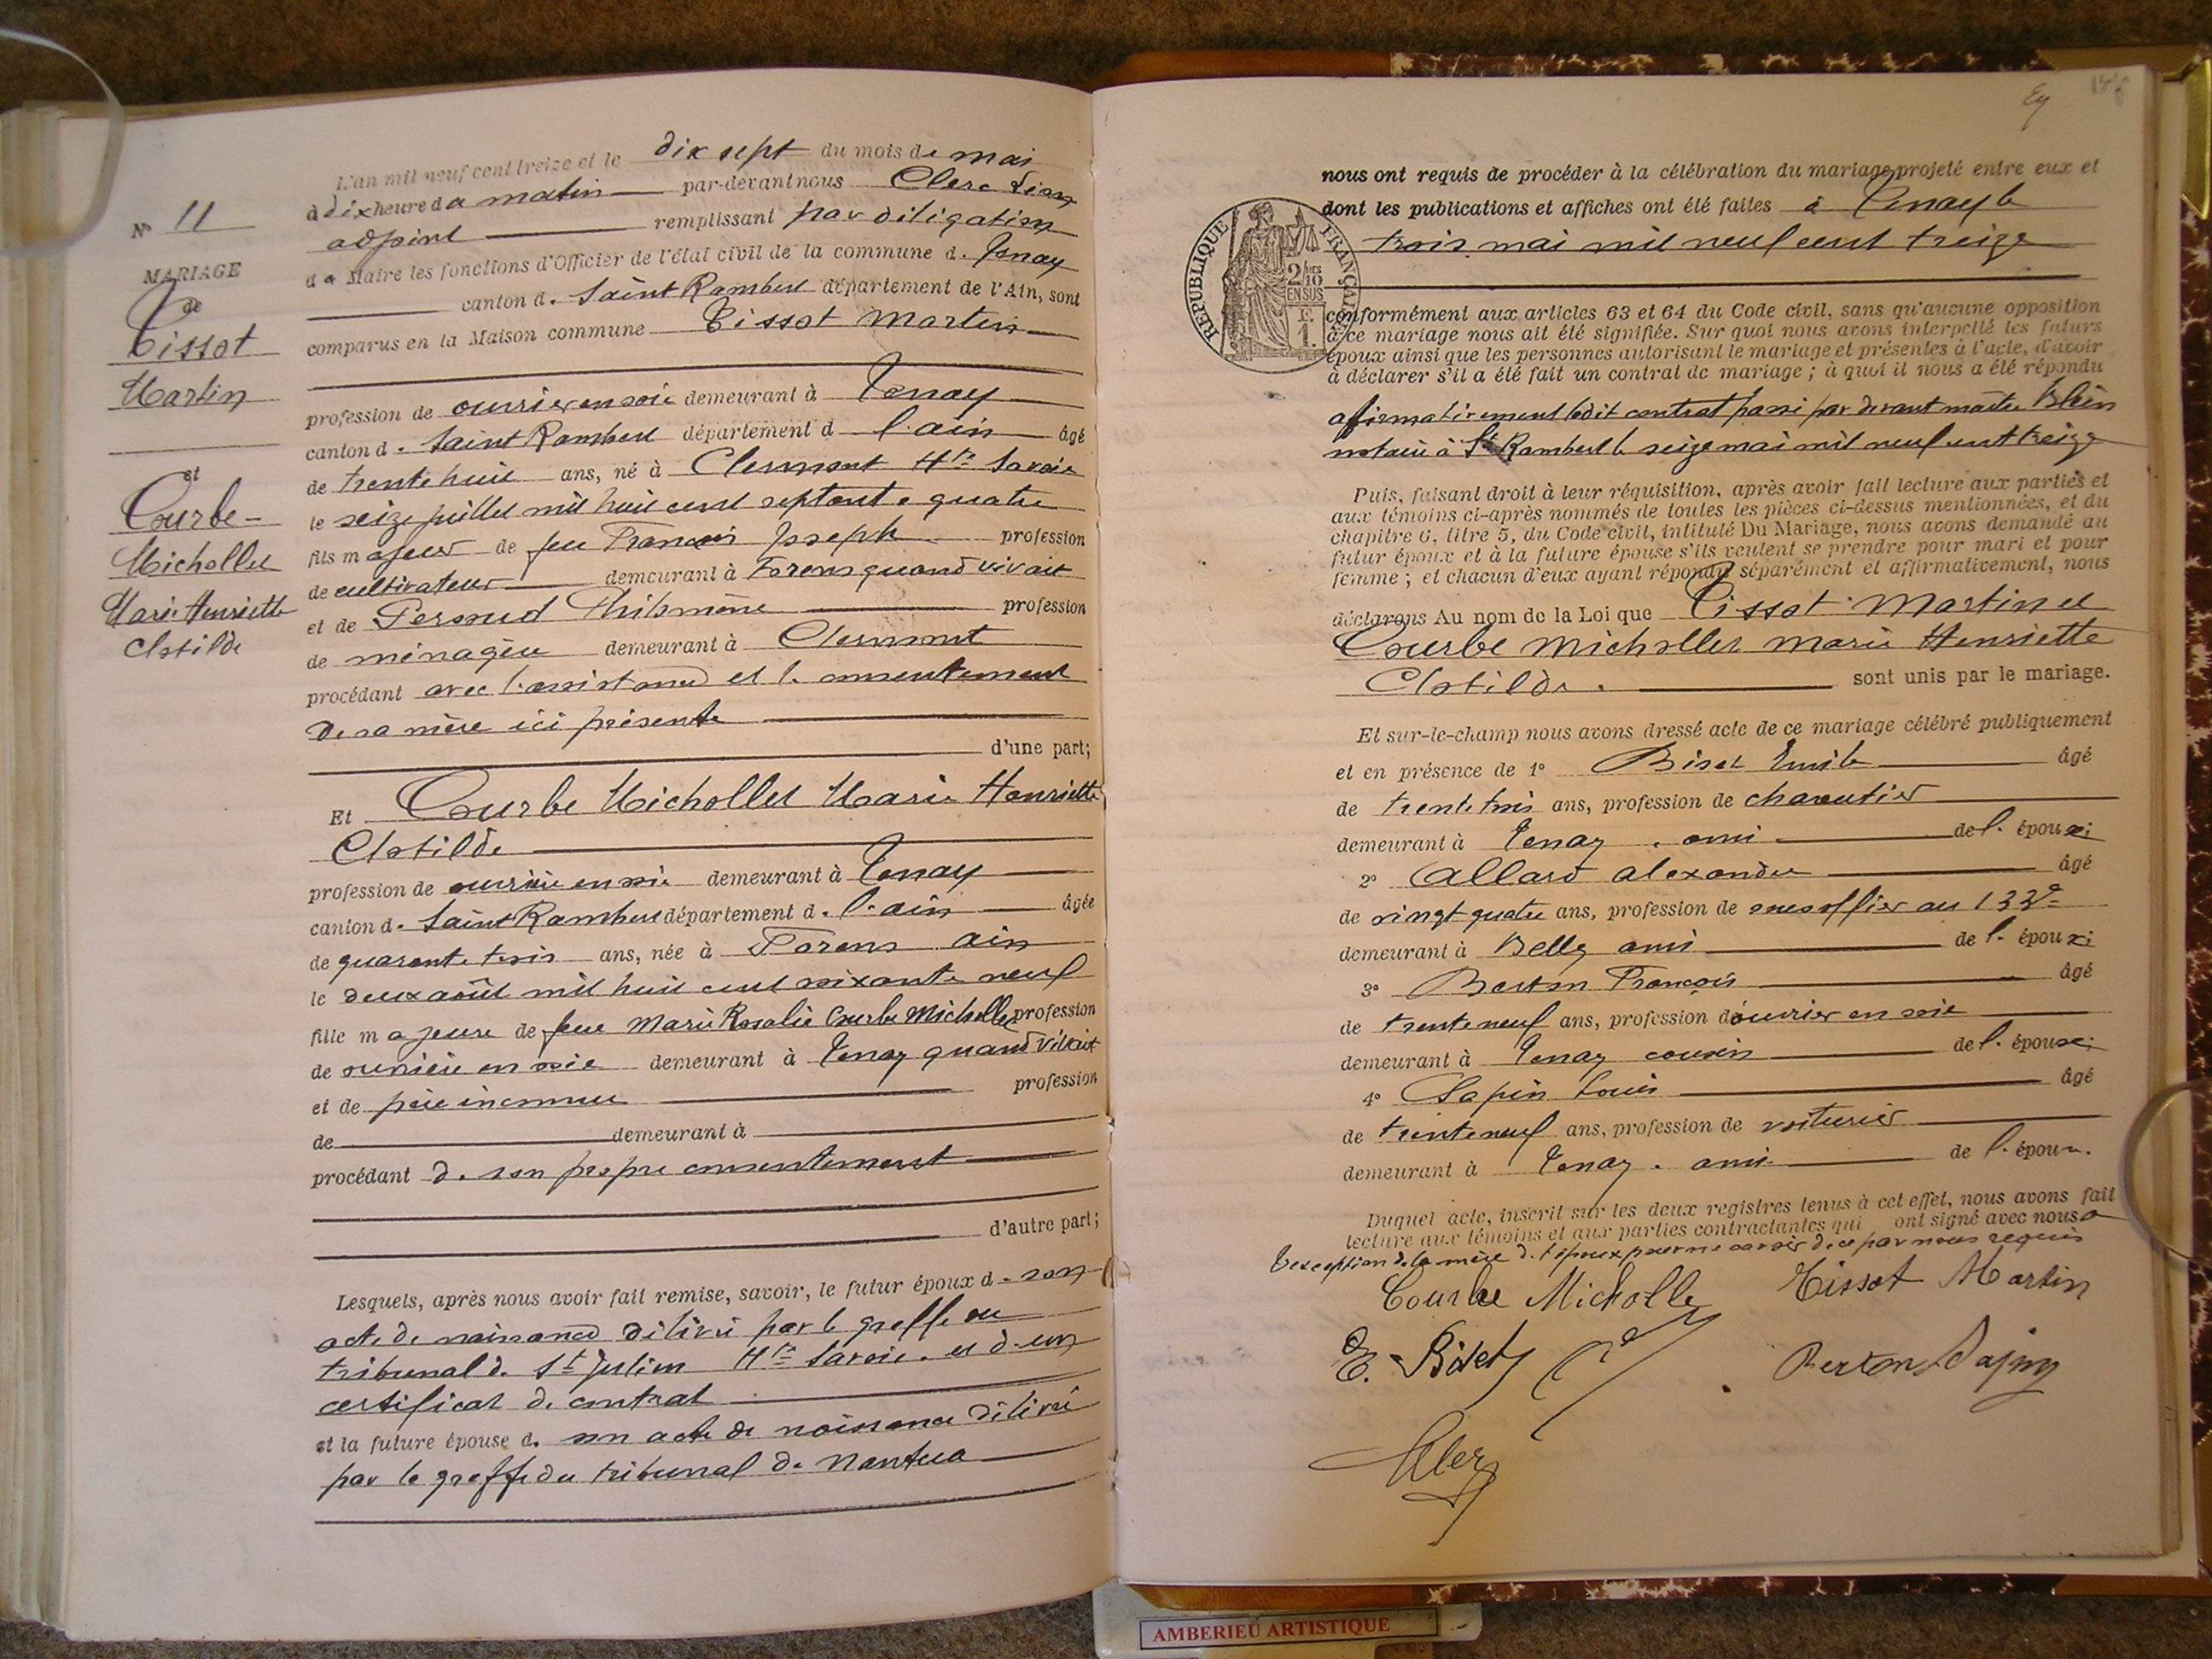 Nº 11
MARIAGE
de
Tissot
Martin
et
Courbe-
Michollet
Marie Henriette
Clotilde
L'an mil neuf cent treize et le dix sept du mois de mai
à dix heure du matin par-devant nous Clerc Léon
adjoint remplissant par délégation
du Maire les fonctions d'Officier de l'état civil de la commune de Tenay
canton de Saint Rambert département de l'Ain, sont
comparus en la Maison commune Tissot Martin
profession de ouvrier en soie demeurant à Tenay
canton de Saint Rambert département de l'ain âgé
de trente huit ans, né à Clermont Hte Savoie
le seize juillet mil huit cent septante quatre
fils majeur de feu François Joseph profession
de cultivateur demeurant à Forens quand vivait
et de Philomène profession
de ménagère demeurant à Clermont
procédant avec l'assistance et le consentement
de sa mère ici présente
d'une part;
Et Courbe Michollet Marie Henriette
Clotilde
profession de ouvrière en soie demeurant à Tenay
canton de Saint Rambert département de l'ain âgée
de quarante trois ans, née à Forens ain
le deux août mil huit cent soixante neuf
fille majeure de feue Marie Rosalie Courbe Michollet profession
de ouvrière en soie demeurant à Tenay quand vivait
et de père inconnu profession
de demeurant à
procédant de son propre consentement
d'autre part;
Lesquels, après nous avoir fait remise, savoir, le futur époux de son
acte de naissance délivré par le greffe du
tribunal de St Julien Hte Savoie et d'un
certificat de contrat
et la future épouse de son acte de naissance délivré
par le greffe du tribunal de Nantua
nous ont requis de procéder à la célébration du mariage projeté entre eux et
dont les publications et affiches ont été faites à Tenay le
trois mai mil neuf cent treize
RÉPUBLIQUE FRANÇAISE
2/10
EN SUS
1 F.
conformément aux articles 63 et 64 du Code civil, sans qu'aucune opposition
à ce mariage nous ait été signifiée. Sur quoi nous avons interpellé les futurs
époux ainsi que les personnes autorisant le mariage et présentes à l'acte, d'avoir
à déclarer s'il a été fait un contrat de mariage; à quoi il nous a été répondu
affirmativement ledit contrat passé par devant maître Blein
notaire à St Rambert le seize mai mil neuf cent treize
Puis, faisant droit à leur réquisition, après avoir fait lecture aux parties et
aux témoins ci-après nommés de toutes les pièces ci-dessus mentionnées, et du
chapitre 6, titre 5, du Code civil, intitulé Du Mariage, nous avons demandé au
futur époux et à la future épouse s'ils veulent se prendre pour mari et pour
femme; et chacun d'eux ayant répondu séparément et affirmativement, nous
déclarons Au nom de la Loi que Tissot Martin et
Courbe Michollet Marie Henriette
Clotilde sont unis par le mariage.
Et sur-le-champ nous avons dressé acte de ce mariage célébré publiquement
et en présence de 1º Biset Emile âgé
de trente trois ans, profession de charcutier
demeurant à Tenay ami de l'époux;
2º Allard Alexandre âgé
de vingt quatre ans, profession de sous officier au 133e
demeurant à Belley ami de l'époux;
3º Berton François âgé
de trente neuf ans, profession d'ouvrier en soie
demeurant à Tenay cousin de l'épouse;
4º Sapin Louis âgé
de trente neuf ans, profession de voiturier
demeurant à Tenay ami de l'époux.
Duquel acte, inscrit sur les deux registres tenus à cet effet, nous avons fait
lecture aux témoins et aux parties contractantes qui ont signé avec nous à
l'exception de la mère de l'époux pour ne savoir de ce par nous requis
Courbe Micholle Tissot Martin
E. Biset Berton Sapin
Clerc
AMBERIEU ARTISTIQUE